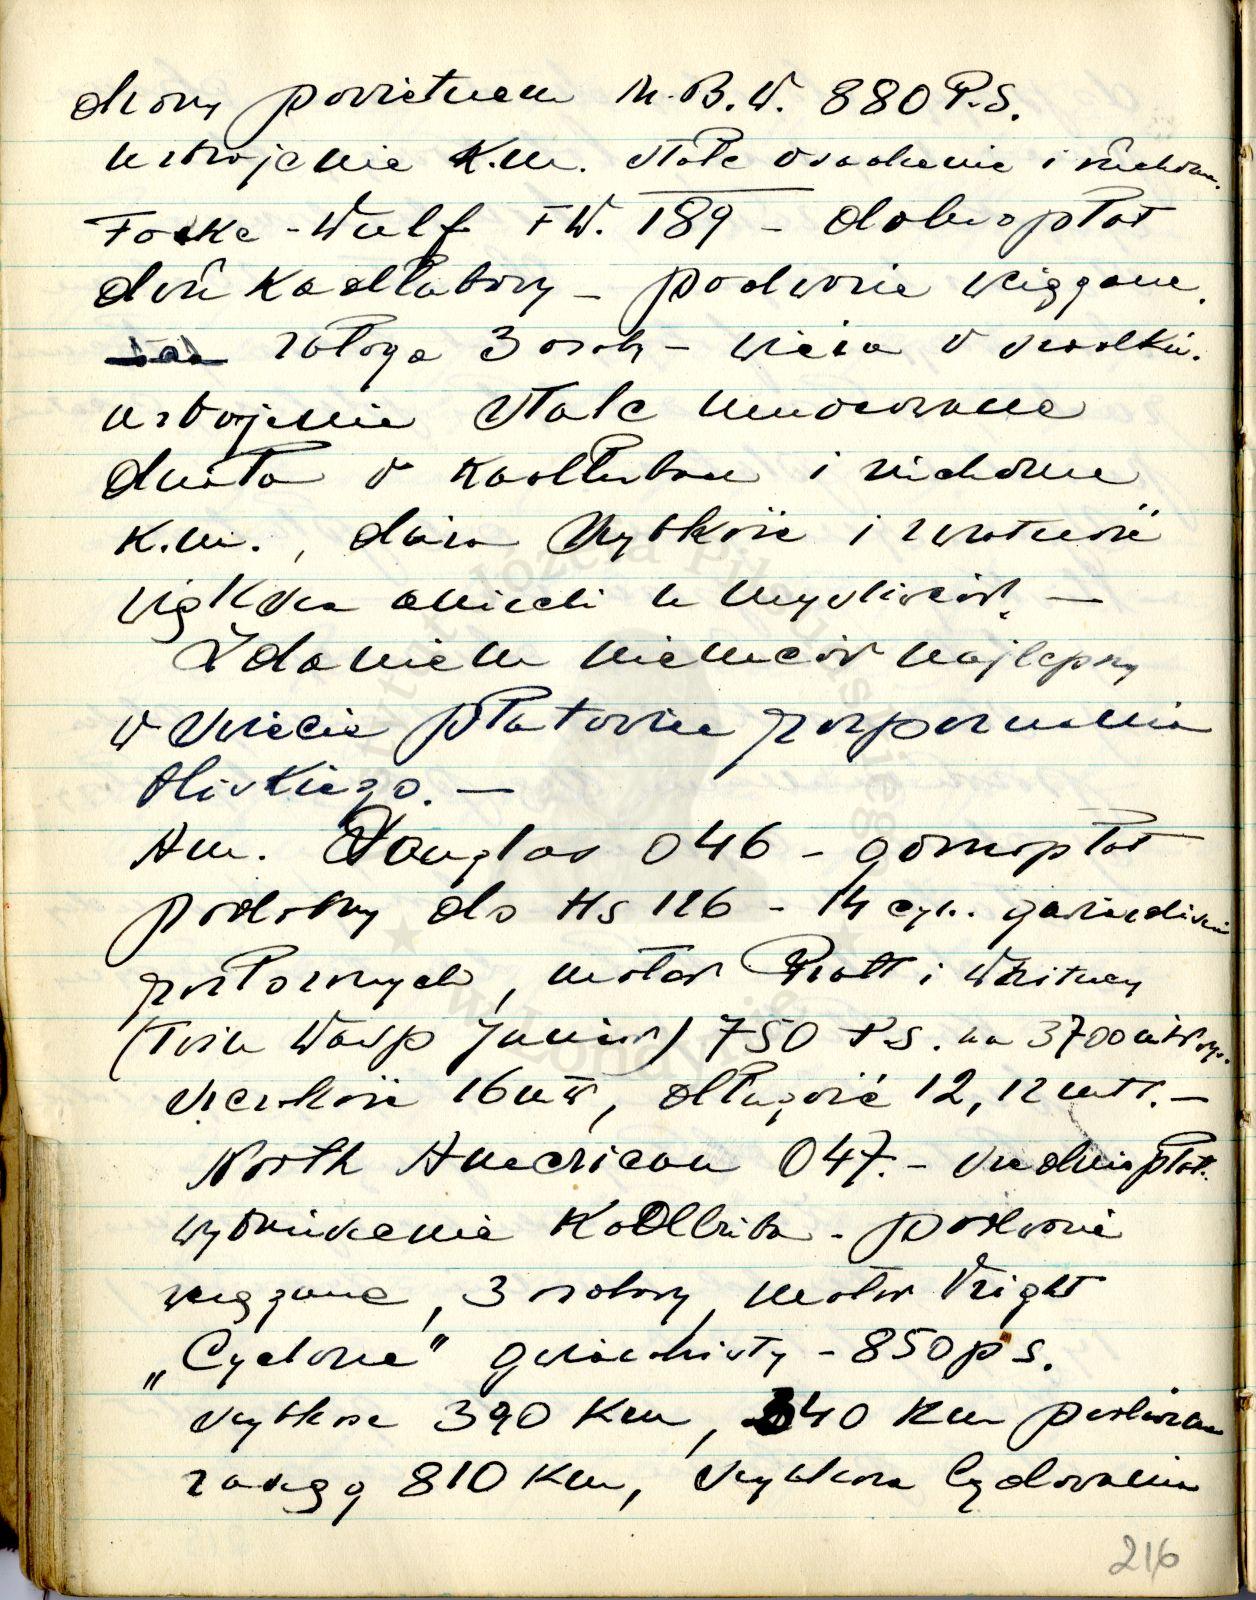 dzony powietrzem M.B.W. 880 P.S.
uzbrojenie K.m. stałe osadzenie i ruchome.
Focke-Wulf FW. 189 - dolnopłat
dwu kadłubowy - podwozie wciągane.
załoga 3 osoby - wieża w środku.
uzbrojenie stałe umocowane
działa w kadłubach i ruchome
K.m., duża szybkość i zwrotność
większa aniżeli u myśliwców. —
Zdaniem niemców najlepszy
w świecie płatowiec rozpoznania
bliskiego. —
Am. Douglas O46 - górnopłat
podobny do Hs 126 - 14 cyl. gwiaździście
położonych, motor Pratt i Whitney
(Twin Wasp Junior) 750 P.S. na 3700 mtr wys.
szerokość 16 mtr, długość 12,12 mtr. —
North American O47. - średniopłat.
wybrzuszenie kadłuba - podwozie
wciągane, 3 osobowy, motor Wright
„Cyclone" gwiaździsty - 850 p s.
szybkość 390 Km, 340 Km podróżna
zasięg 810 Km, szybkość lądowania
216
Instytut Józefa Piłsudskiego
w Londynie